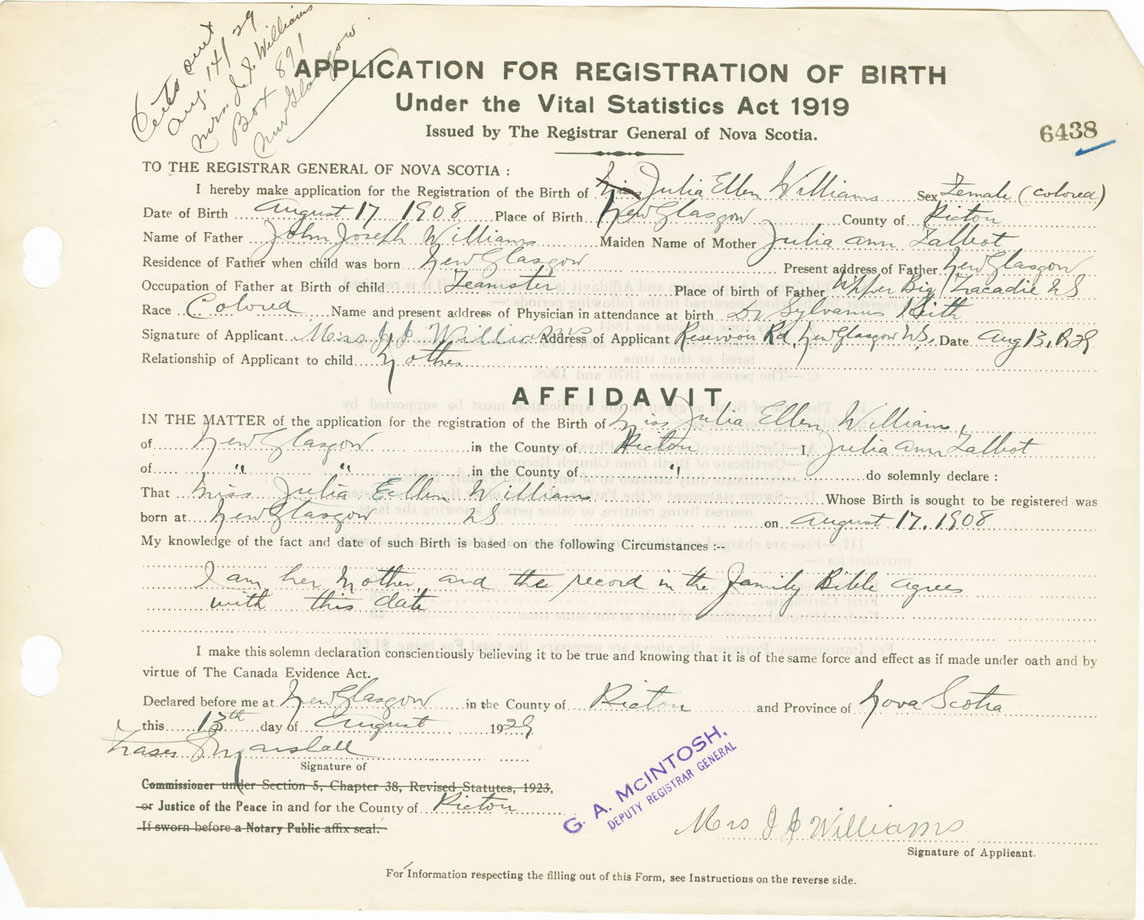 Certs sent
Aug. 14/29
Mrs. J. J. Williams
Box 891
New Glasgow.
APPLICATION FOR REGISTRATION OF BIRTH
Under the Vital Statistics Act 1919
Issued by The Registrar General of Nova Scotia.
6438
TO THE REGISTRAR GENERAL OF NOVA SCOTIA :
I hereby make application for the Registration of the Birth of Miss Julia Ellen Williams Sex Female (colored)
Date of Birth August 17 1908 Place of Birth New Glasgow County of Pictou
Name of Father John Joseph Williams Maiden Name of Mother Julia ann Talbot
Residence of Father when child was born New Glasgow Present address of Father New Glasgow
Occupation of Father at Birth of child Teamster Place of birth of Father Upper Big Tracadie NS
Race Colored Name and present address of Physician in attendance at birth Dr Sylvanus Keith
Signature of Applicant Mrs J J Williams Address of Applicant Reservoir Rd, New Glasgow NS. Date Aug 13, 1929
Relationship of Applicant to child Mother
AFFIDAVIT
IN THE MATTER of the application for the registration of the Birth of Miss Julia Ellen Williams,
of New Glasgow in the County of Pictou I, Julia ann Talbot
of " " in the County of " do solemnly declare :
That Miss Julia Ellen Williams Whose Birth is sought to be registered was
born at New Glasgow NS on August 17, 1908
My knowledge of the fact and date of such Birth is based on the following Circumstances :--
I am her Mother, and the record in the Family Bible agrees
with this date
I make this solemn declaration conscientiously believing it to be true and knowing that it is of the same force and effect as if made under oath and by
virtue of The Canada Evidence Act.
Declared before me at New Glasgow in the County of Pictou and Province of Nova Scotia
this 13th day of August 1929
Fraser Marshall
Signature of
Commissioner under Section 5, Chapter 38, Revised Statutes, 1923,
or Justice of the Peace in and for the County of Pictou
If sworn before a Notary Public affix seal.
G. A. MCINTOSH,
DEPUTY REGISTRAR GENERAL
Mrs J J Williams
Signature of Applicant.
For Information respecting the filling out of this Form, see Instructions on the reverse side.